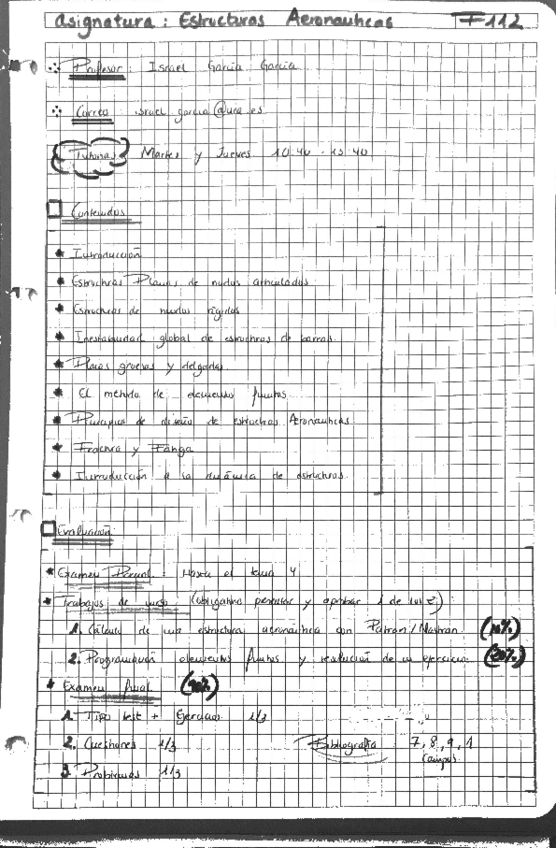 Asignatura: Estructuras Aeronauticas F112
Profesor: Israel García García
Correo israel.garcia@uca.es
Tutorias Martes y Jueves 10:40 - 13:40
Contenidos
Introducción
Estructuras Planas de nudos articulados
Estructuras de nudos rígidos
Inestabilidad global de estructuras de barras
Placas gruesas y delgadas
El método de elementos finitos
Principios de diseño de estructuras Aeronauticas
Fractura y Fatiga
Introducción a la dinámica de estructuras
Evaluación
Examen Parcial: Hasta el tema 4
Trabajos de curso (obligatorio presentar y aprobar 1 de los 2):
1. Cálculo de una estructura aeronautica con Patran/Nastran (10%)
2. Programación elementos finitos y resolución de un ejercicio (20%)
Examen final
1. Tipo test + Ejercicios 1/3
2. Cuestiones 1/3 Bibliografía 7, 8, 9, 1
Campus
3. Problemas 1/3